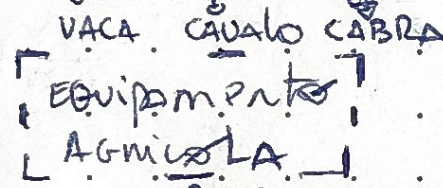 VACA CAVALO CABRA
EQUIPAMENTO
AGRICOLA